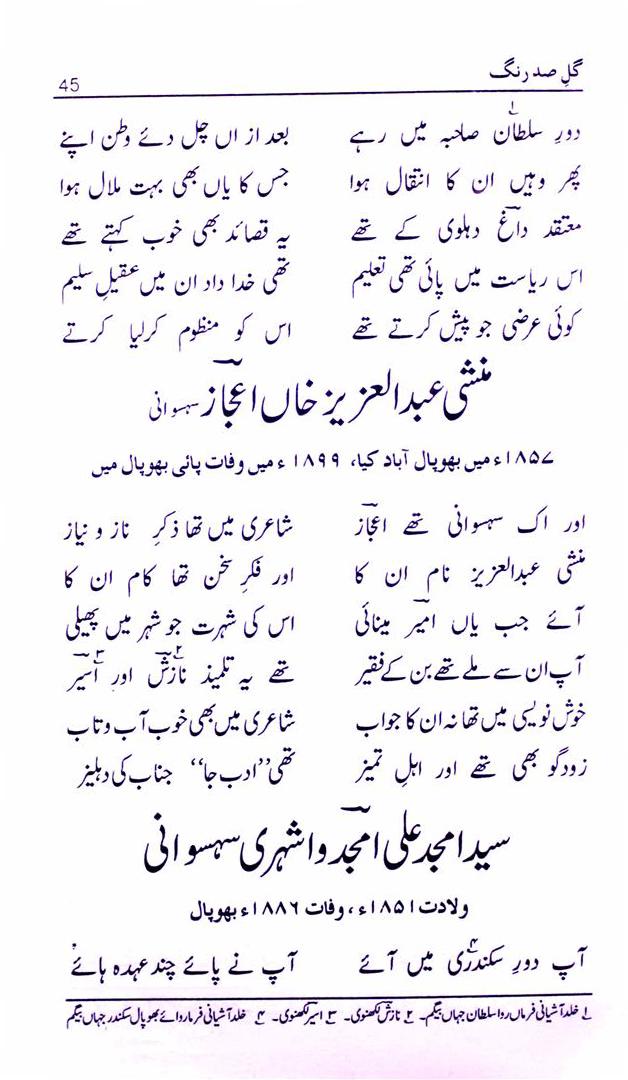 گلِ صد رنگ
45
دورِ سلطاںؔ۱ صاحبہ میں رہے بعد از اں چل دئے وطن اپنے
پھر وہیں ان کا انتقال ہوا جس کا یاں بھی بہت ملال ہوا
معتقد داغؔ دہلوی کے تھے یہ قصائد بھی خوب کہتے تھے
اس ریاست میں پائی تھی تعلیم تھی خدا داد ان میں عقیلِ سلیم
کوئی عرضی جو پیش کرتے تھے اس کو منظوم کرلیا کرتے
منشی عبدالعزیز خاں اعجازؔ سہسوانی
۱۸۵۷ء میں بھوپال آباد کیا، ۱۸۹۹ء میں وفات پائی بھوپال میں
اور اک سہسوانی تھے اعجازؔ شاعری میں تھا ذکرِ ناز و نیاز
منشی عبدالعزیز نام ان کا اور فکرِ سخن تھا کام ان کا
آئے جب یاں امیرؔ مینائی اس کی شہرت جو شہر میں پھیلی
آپ ان سے ملے تھے بن کے فقیر تھے یہ تلمیذ نازشؔ۲ اور اسیرؔ۳
خوش نویسی میں تھا نہ ان کا جواب شاعری میں بھی خوب آب و تاب
زودگو بھی تھے اور اہلِ تمیز تھی ”ادب جا“ جناب کی دہلیز
سید امجد علی امجدؔ و اشہری سہسوانی
ولادت ۱۸۵۱ء، وفات ۱۸۸۶ء بھوپال
آپ دورِ سکندری۴ میں آئے آپ نے پائے چند عہدہ ہائے
۱ خلد آشیانی فرماں روا سلطان جہاں بیگم۔ ۲ نازشؔ لکھنوی۔ ۳ اسیرؔ لکھنوی۔ ۴ خلد آشیانی فرماروائے بھوپال سکندر جہاں بیگم